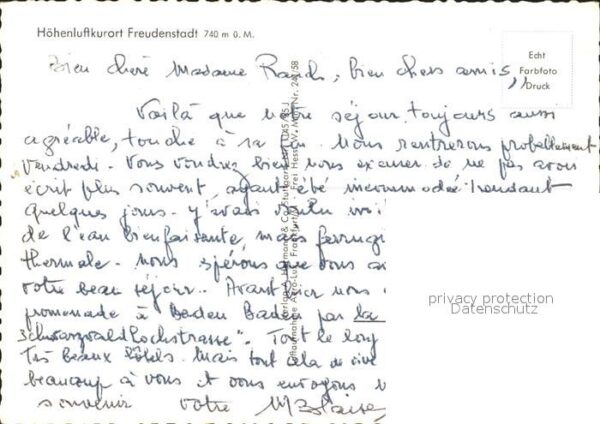 Höhenluftkurort Freudenstadt 740 m ü. M.
Echt
Farbfoto
Druck
Bien chère Madame, bien chers amis,
Voilà que notre séjour, toujours aussi
agréable, touche à sa fin. Nous rentrerons probablement
Vendredi - Vous voudrez bien nous excuser de ne pas avoir
écrit plus souvent, ayant été incommodée pendant
quelques jours - j'avais voulu
de l'eau bienfaisante, mais
thermale - Nous espérons que vous
votre beau séjour. - Avant hier nous
promenade à Baden Baden par la
Schwarzwald Hochstrasse". Tout le long
Très beaux hôtels. Mais tout cela
beaucoup à vous et vous envoyons
souvenir votre
privacy protection
Datenschutz